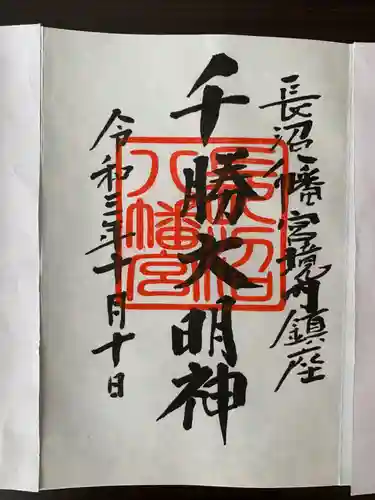 長沼八幡宮境内鎮座
千勝大明神
令和三年十月十日
長沼八幡宮